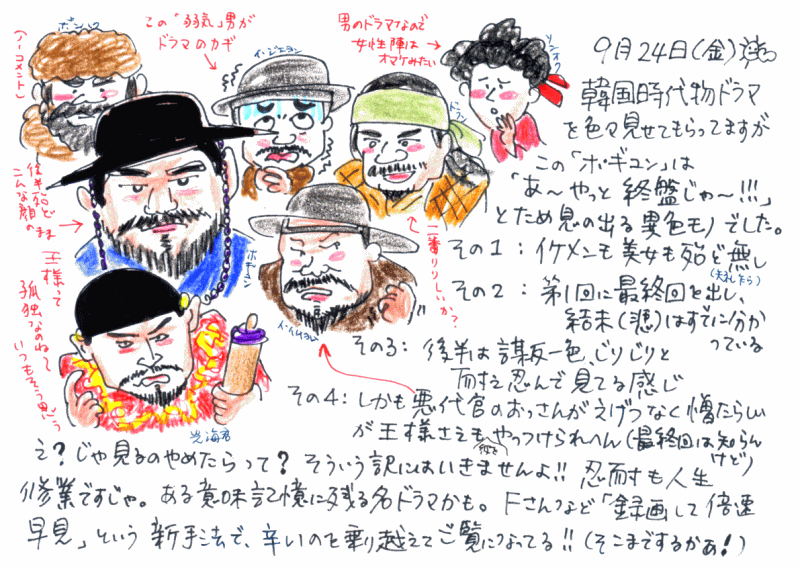 9月24日(金)
韓国時代物ドラマ
を色々見せてもらってますが
この「ホ・ギュン」は
「あ〜やっと終盤じゃ〜!!!」
とため息の出る異色モノでした。
その1:イケメンも美女も殆ど無し
(失礼したら)
その2:第1回に最終回を出し、
結末(悲)はすでに分か
っている
その3:後半は謀反一色、じりじりと
耐え忍んで見てる感じ
その4:しかも悪代官のおっさんがえげつなく憎たらしい
が王様さえもやっつけられへん(最終回は知らん
けど)
え?じゃ見るのやめたらって?そういう訳にはいきませんよ!!忍耐も人生
修業ですじゃ。ある意味記憶に残る名ドラマかも。Fさんなど「録画して倍速
早見」という新手法で、辛いのを乗り越えてご覧になってる!!(そこまでするかぁ!)
この「弱気」男が
ドラマのカギ
男のドラマなので
女性陣は
オマケみたい
(ノーコメント)
後半殆ど
こんな顔
のまま
ホ・ギュン
一番りりしいか?
王様って
孤独なのねって
いつもそう思う
光海君